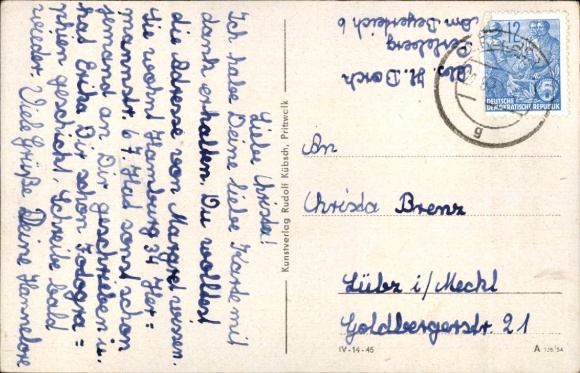 Liebe Christa!
Ich habe Deine liebe Karte mit
dank erhalten. Du wolltest
die Adresse von Margret wissen.
Sie wohnt Hamburg 34 Her=
mannstr. 67 Hat sonst schon
jemand an Dir geschrieben u.
hat Erika Dir schon Fotogra=
phien geschickt. Schreibe bald
wieder. Viele Grüße Deine Hannelore
Kunstverlag Rudolf Kübsch, Pritzwalk
Abs. H. Dorch
Perleberg
Am Beyerteich 6
12
DEUTSCHE
DEMOKRATISCHE REPUBLIK
6
g
An
Christa Brenz
Lübz i/Meckl
Goldbergerstr. 21
IV-14-45
A 138/54